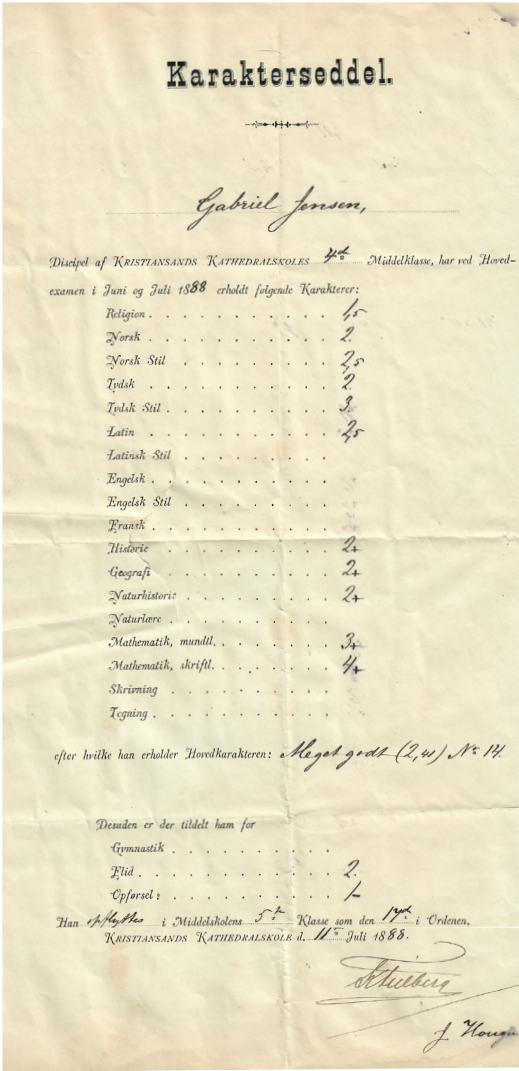 Karakterseddel.
Gabriel Jensen,
Discipel af KRISTIANSANDS KATHEDRALSKOLES 4de Middelklasse, har ved Hoved-
examen i Juni og Juli 1888 erholdt følgende Karakterer:
Religion . . . . . . . . . . 1,5
Norsk . . . . . . . . . . 2.
Norsk Stil . . . . . . . . . 2,5
Tydsk . . . . . . . . . . 2.
Tydsk Stil . . . . . . . . . 3.
Latin . . . . . . . . . . 2,5
Latinsk Stil . . . . . . . .
Engelsk . . . . . . . . . .
Engelsk Stil . . . . . . . .
Fransk . . . . . . . . . .
Historie . . . . . . . . . 2+
Geografi . . . . . . . . . 2+
Naturhistorie . . . . . . . . 2+
Naturlære . . . . . . . . .
Mathematik, mundtl. . . . . . . 3+
Mathematik, skriftl. . . . . . . 4+
Skrivning . . . . . . . . .
Tegning . . . . . . . . . .
efter hvilke han erholder Hovedkarakteren: Meget godt (2,41) No 14.
Desuden er der tildelt ham for
Gymnastik . . . . . . . . .
Flid . . . . . . . . . . 2.
Opførsel: . . . . . . . . . 1-
Han opflyttes i Middelskolens 5te Klasse som den 17de i Ordenen.
KRISTIANSANDS KATHEDRALSKOLE d. 11te Juli 1888.